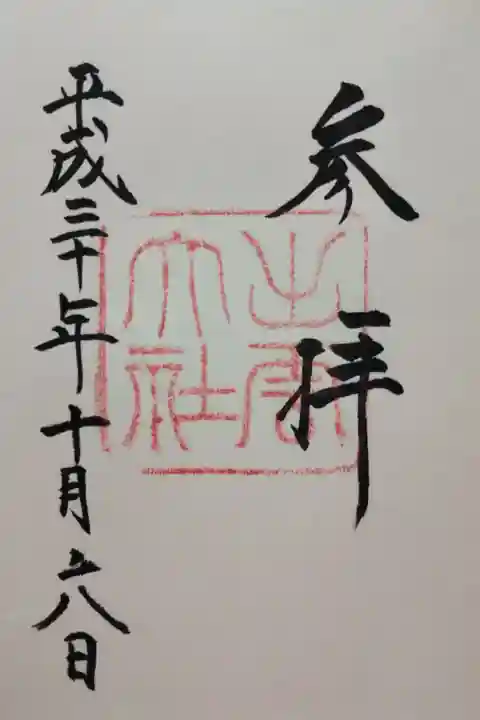 参拝
出雲大社
平成三十年十月六日